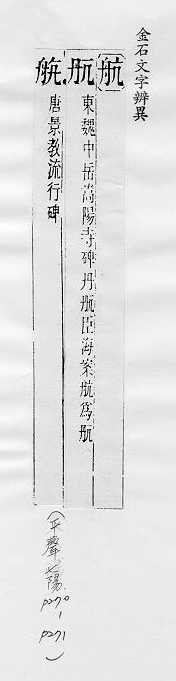 金石文字辨異
航
航東魏中岳嵩陽寺碑丹航臣海案航為航
唐景教流行碑
(平聲、七陽 p270、p271)